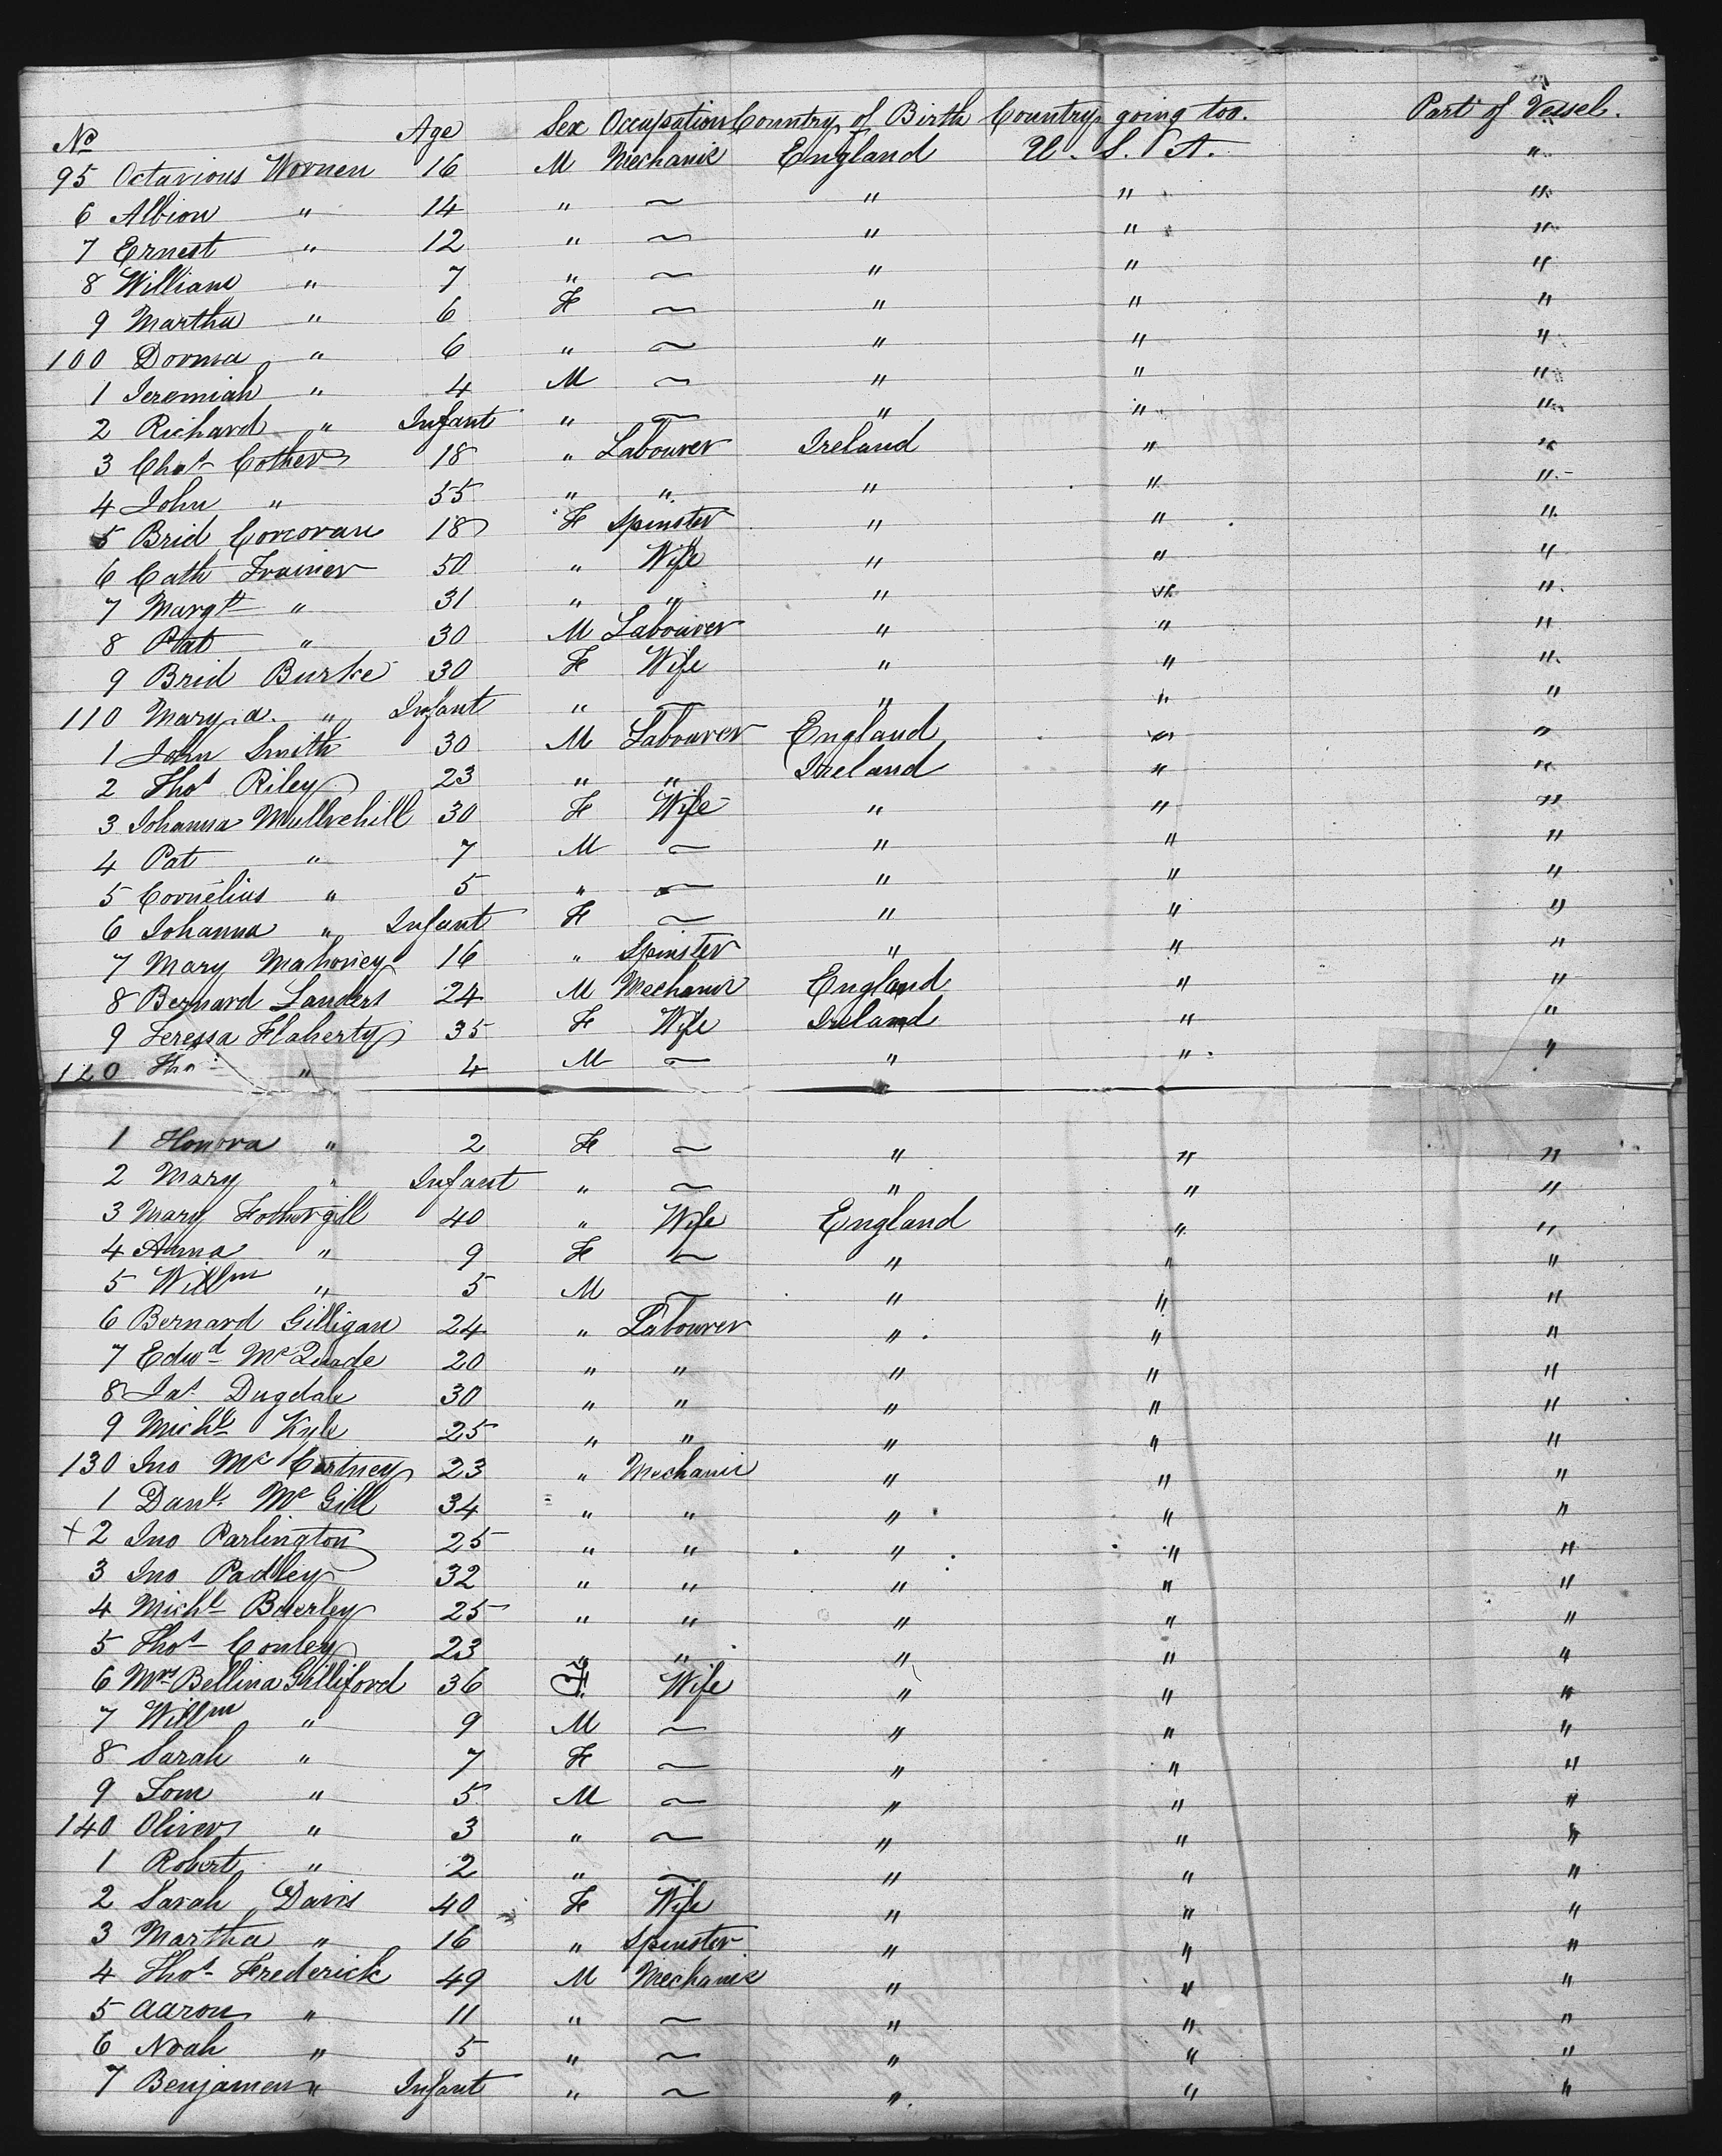 No Age Sex Occupation Country of Birth Country going too. Part of Vessel.
95 Octavious Wornen 16 M Mechanic England U. S. A. "
6 Albion " 14 " ~ " " "
7 Ernest " 12 " ~ " " "
8 William " 7 " ~ " " "
9 Martha " 6 F ~ " " "
100 Dorma " 6 " ~ " " "
1 Jeremiah " 4 M ~ " " "
2 Richard " Infant " ~ " " "
3 Chas Cother 18 " Labourer Ireland " "
4 John " 55 " " " " "
5 Brid Corcoran 18 F Spinster " " "
6 Cath Trainer 50 " Wife " " "
7 Margt " 31 " " " " "
8 Pat " 30 M Labourer " " "
9 Brid Burke 30 F Wife " " "
110 Mary a. " Infant " ~ " " "
1 John Smith 30 M Labourer England " "
2 Thos Riley 23 " " Ireland " "
3 Johanna Mullvehill 30 F Wife " " "
4 Pat " 7 M ~ " " "
5 Cornelius " 5 " ~ " " "
6 Johanna " Infant F ~ " " "
7 Mary Mahoney 16 " Spinster " " "
8 Bernard Landers 24 M Mechanic England " "
9 Teressa Flaherty 35 F Wife Ireland " "
120 Thos " 4 M ~ " " "
1 Honora " 2 F ~ " " "
2 Mary " Infant " ~ " " "
3 Mary Fothergill 40 " Wife England " "
4 Anna " 9 F ~ " " "
5 Willm " 5 M ~ " " "
6 Bernard Gilligan 24 " Labourer " " "
7 Edwd McQuade 20 " " " " "
8 Jas Dugdale 30 " " " " "
9 Michl Kyle 25 " " " " "
130 Jno McCartney 23 " Mechanic " " "
1 Danl McGill 34 " " " " "
+2 Jno Parlington 25 " " " " "
3 Jno Padley 32 " " " " "
4 Michl Baerley 25 " " " " "
5 Thos Conley 23 " " " " "
6 Mrs Bellina Gilliford 36 F Wife " " "
7 Willm " 9 M ~ " " "
8 Sarah " 7 F ~ " " "
9 Tom " 5 M ~ " " "
140 Oliver " 3 " ~ " " "
1 Robert " 2 " ~ " " "
2 Sarah Davis 40 F Wife " " "
3 Martha " 16 " Spinster " " "
4 Thos Frederick 49 M Mechanic " " "
5 Aaron " 11 " ~ " " "
6 Noah " 5 " ~ " " "
7 Benjamen " Infant " ~ " " "